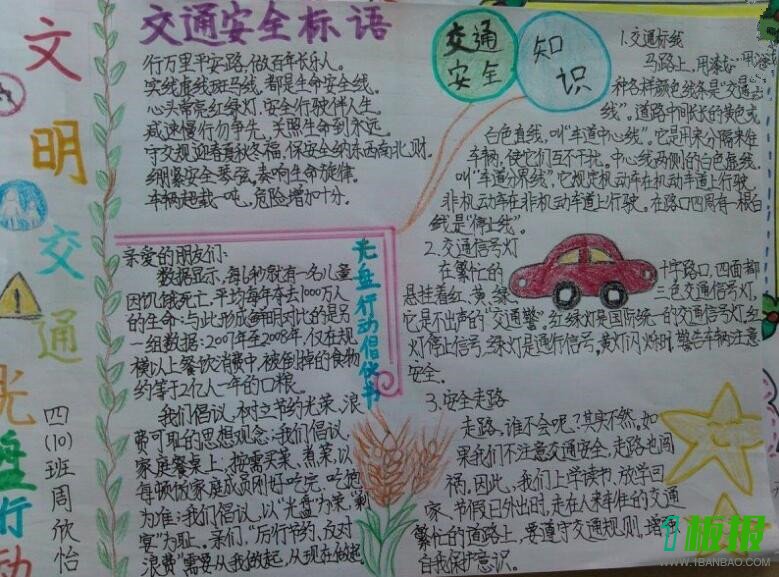 文明交通
光盘行动
四(10)班周欣怡
交通安全标语
行万里平安路,做百年长乐人。
实线虚线斑马线,都是生命安全线。
心头常亮红绿灯,安全行驶伴人生
减速慢行勿争先,关照生命到永远。
守交规迎春夏秋冬福,保安全纳东西南北财.
绷紧安全琴弦,奏响生命旋律。
车辆超载一吨,危险增加十分.
光盘行动倡仪书
亲爱的朋友们:
数据显示,每6秒就有一名儿童
因饥饿死亡,平均每年夺去1000万人
的生命:与此形成鲜明对比的是另
一组数据:2007年至2008年,仅在规
模以上餐饮消费中,被倒掉的食物
约等于2亿人一年的口粮。
我们倡议,树立节约光荣、浪
费可耻的思想观念:我们倡议,
家庭餐桌上,按需买菜、煮菜,以
每顿饭家庭成员刚好吃完、吃抱
为准:我们倡议,以"光盘"为荣,剩
宴"为耻。亲们,"厉行节约、反对
浪费"需要从我做起,从现在做起.
交通安全
知识
1.交通标线
马路上,用漆划
种各样颜色线条是"交通
线"。道路中间长长的黄色或
白色直线,叫"车道中心线"。它是用来分隔来往
车辆,使它们互不干扰。中心线两侧的白色虚线,
叫"车道分界线",它规定机动车在机动车道上行驶,
非机动车在非机动车道上行驶。在路口四周有一根白
线是"停止线"。
2.交通信号灯
在繁忙的十字路口,四面都
悬挂着红、黄、绿、三色交通信号灯,
它是不出声的"交通警"。红绿灯是国际统一的交通信号灯红
灯停止信号,绿灯是通行信号,黄灯闪烁时,警告车辆注意
安全.
3.安全走路
走路,谁不会呢?其实不然。如
果我们不注意交通安全,走路也闯
祸。因此,我们上学读书、放学回
家、节假日外出时,走在人来车往的交通
繁忙的道路上,要遵守交通规则,增
自我保护意识。
1板报
WWW.1BANBAO.COM